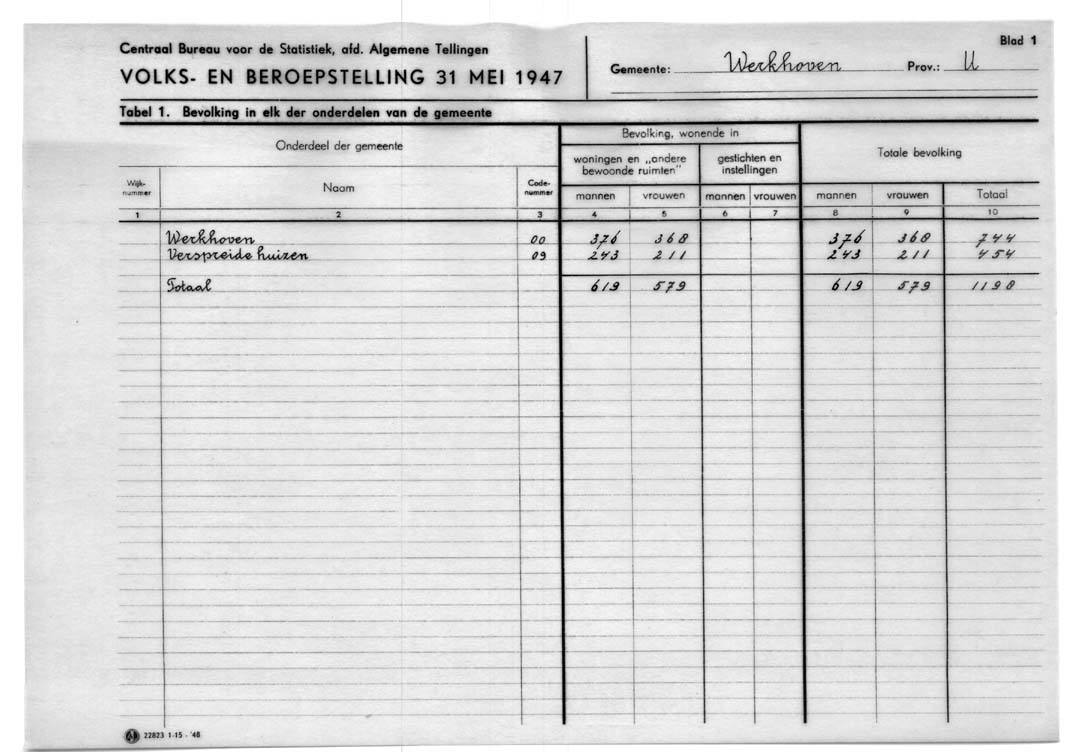 Centraal Bureau voor de Statistiek, afd. Algemene Tellingen
VOLKS- EN BEROEPSTELLING 31 MEI 1947
Gemeente: Werkhoven Prov.: U
Blad 1
Tabel 1. Bevolking in elk der onderdelen van de gemeente
Onderdeel der gemeente Bevolking, wonende in Totale bevolking
woningen en „andere bewoonde ruimten" gestichten en instellingen
Wijk-nummer Naam Code-nummer mannen vrouwen mannen vrouwen mannen vrouwen Totaal
1 2 3 4 5 6 7 8 9 10
Werkhoven 00 376 368 376 368 744
Verspreide huizen 09 243 211 243 211 454
Totaal 619 579 619 579 1198
22823 1-15 - '48